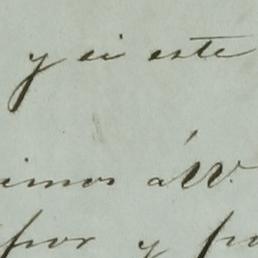 y si este
imos á W.
por y